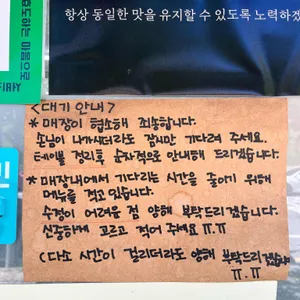 항상 동일한 맛을 유지할 수 있도록 노력하겠
<대기 안내>
* 매장이 협소해 죄송합니다.
손님이 나가시더라도 잠시만 기다려 주세요.
테이블 정리후 순차적으로 안내해 드리겠습니다.
* 매장내에서 기다리는 시간을 줄이기 위해
메뉴를 적고 있습니다.
수정이 어려울 점 양해 부탁드리겠습니다.
신중하게 고르고 적어 주세요 ㅠ.ㅠ
(다소 시간이 걸리더라도 양해 부탁드리겠습니
ㅠ.ㅠ